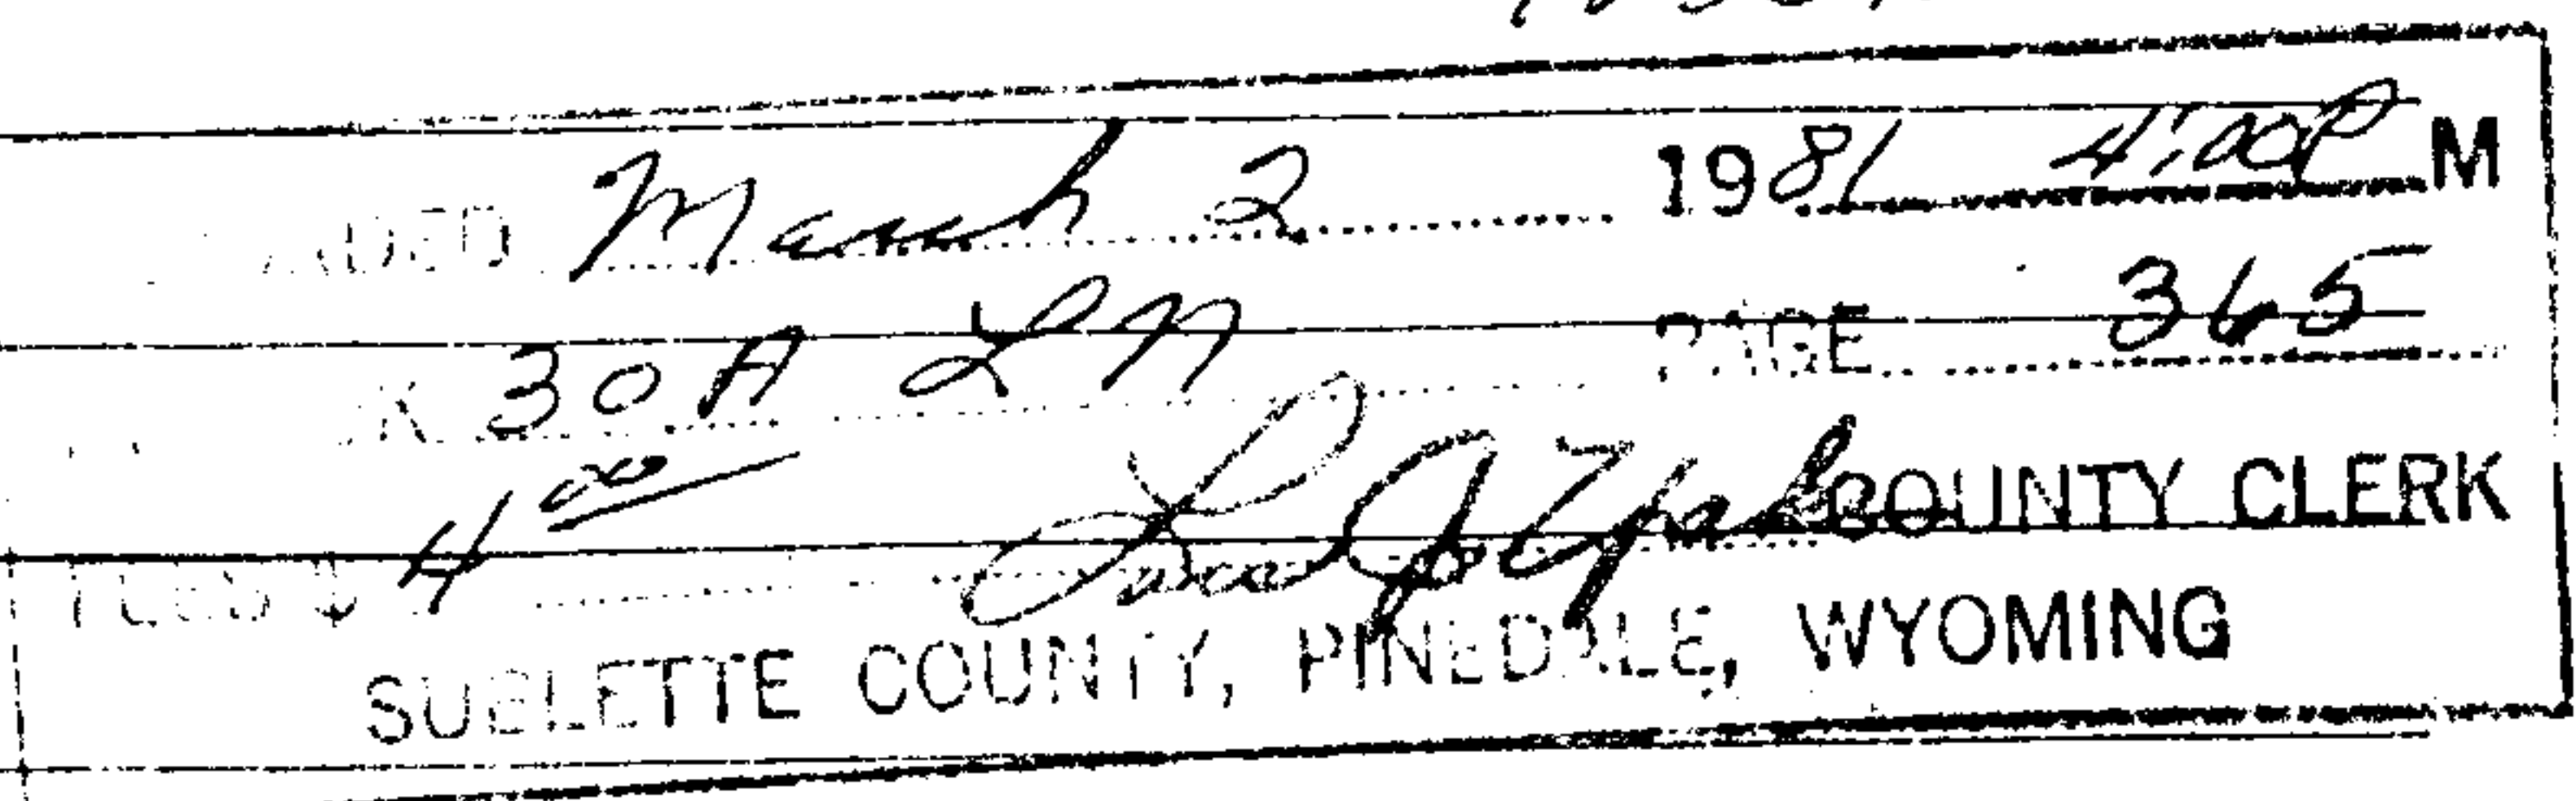 March 2 1981 4:00 P M
30 A PAGE 365
FEES $ 4 00 COUNTY CLERK
SUBLETTE COUNTY, PINEDALE, WYOMING